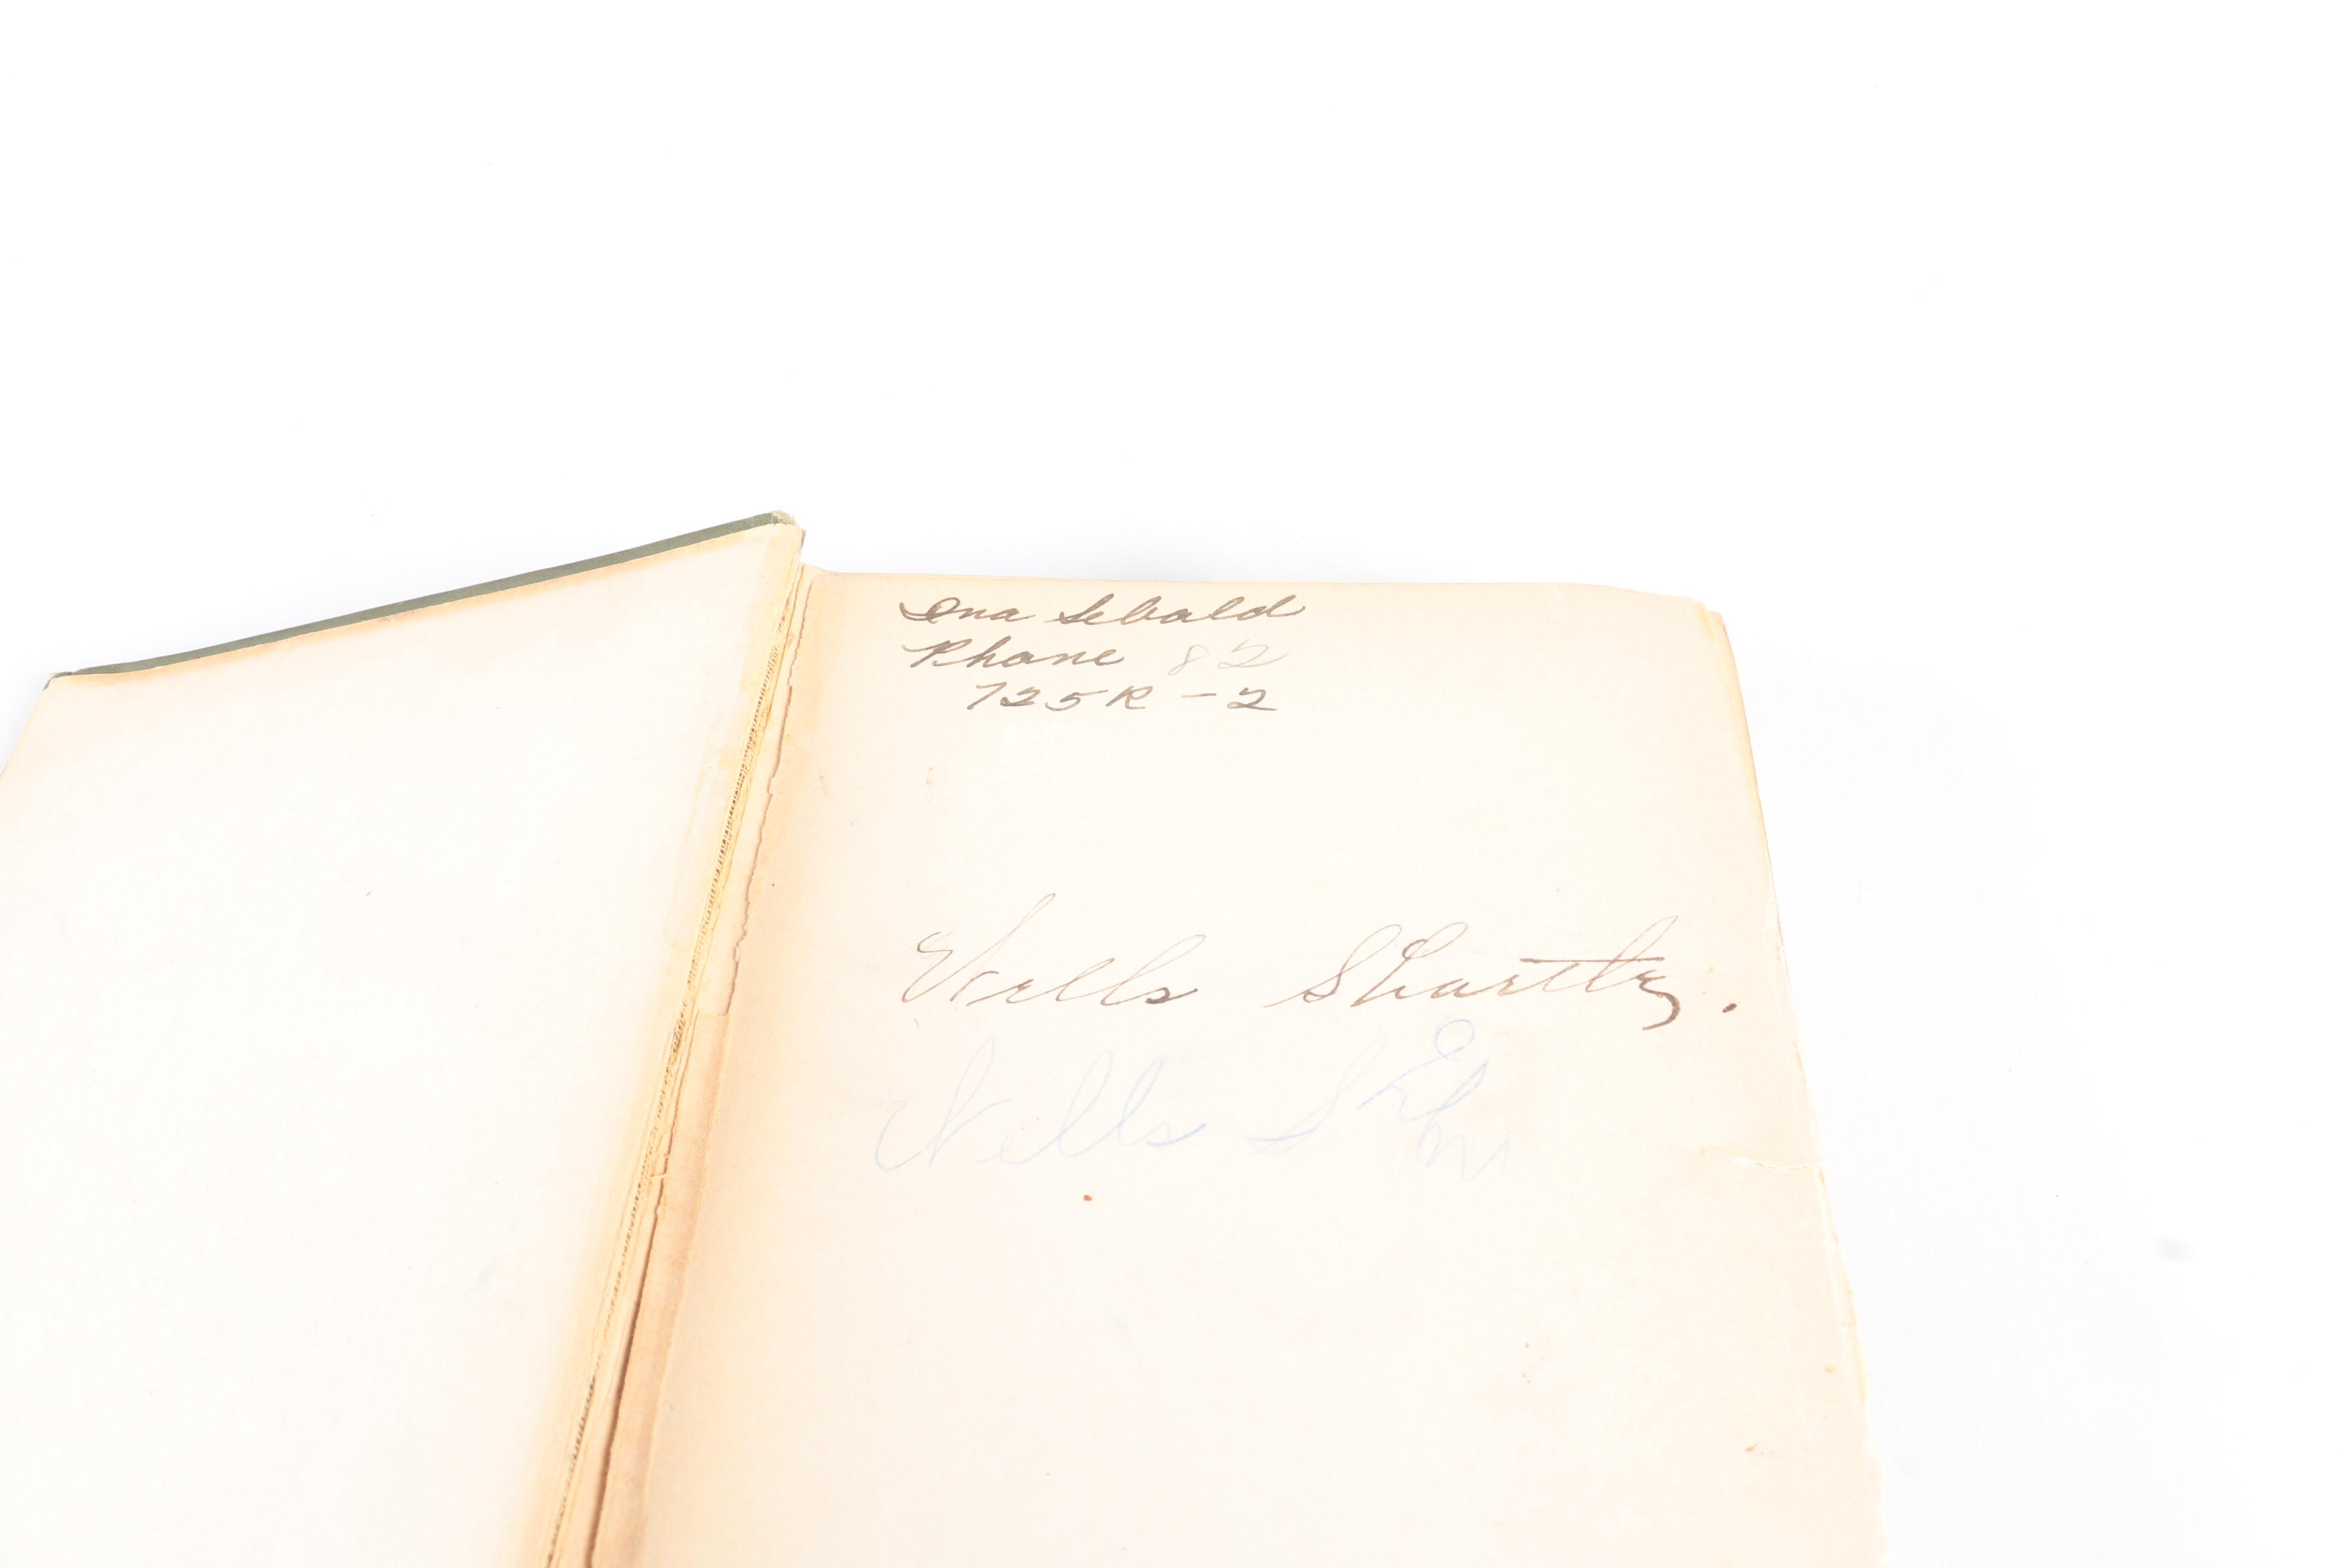 Ina Sebald
Phone 82
725R-2
Wells Shartly.
Wells